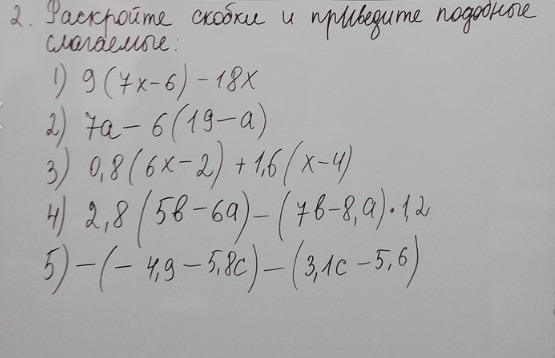 2. Раскройте скобки и приведите подобные
слагаемые:
1) 9(7x-6)-18x
2) 7a-6(19-a)
3) 0,8(6x-2)+1,6(x-4)
4) 2,8(5b-6a)-(7b-8,a)·1,2
5) -(-4,9-5,8c)-(3,1c-5,6)